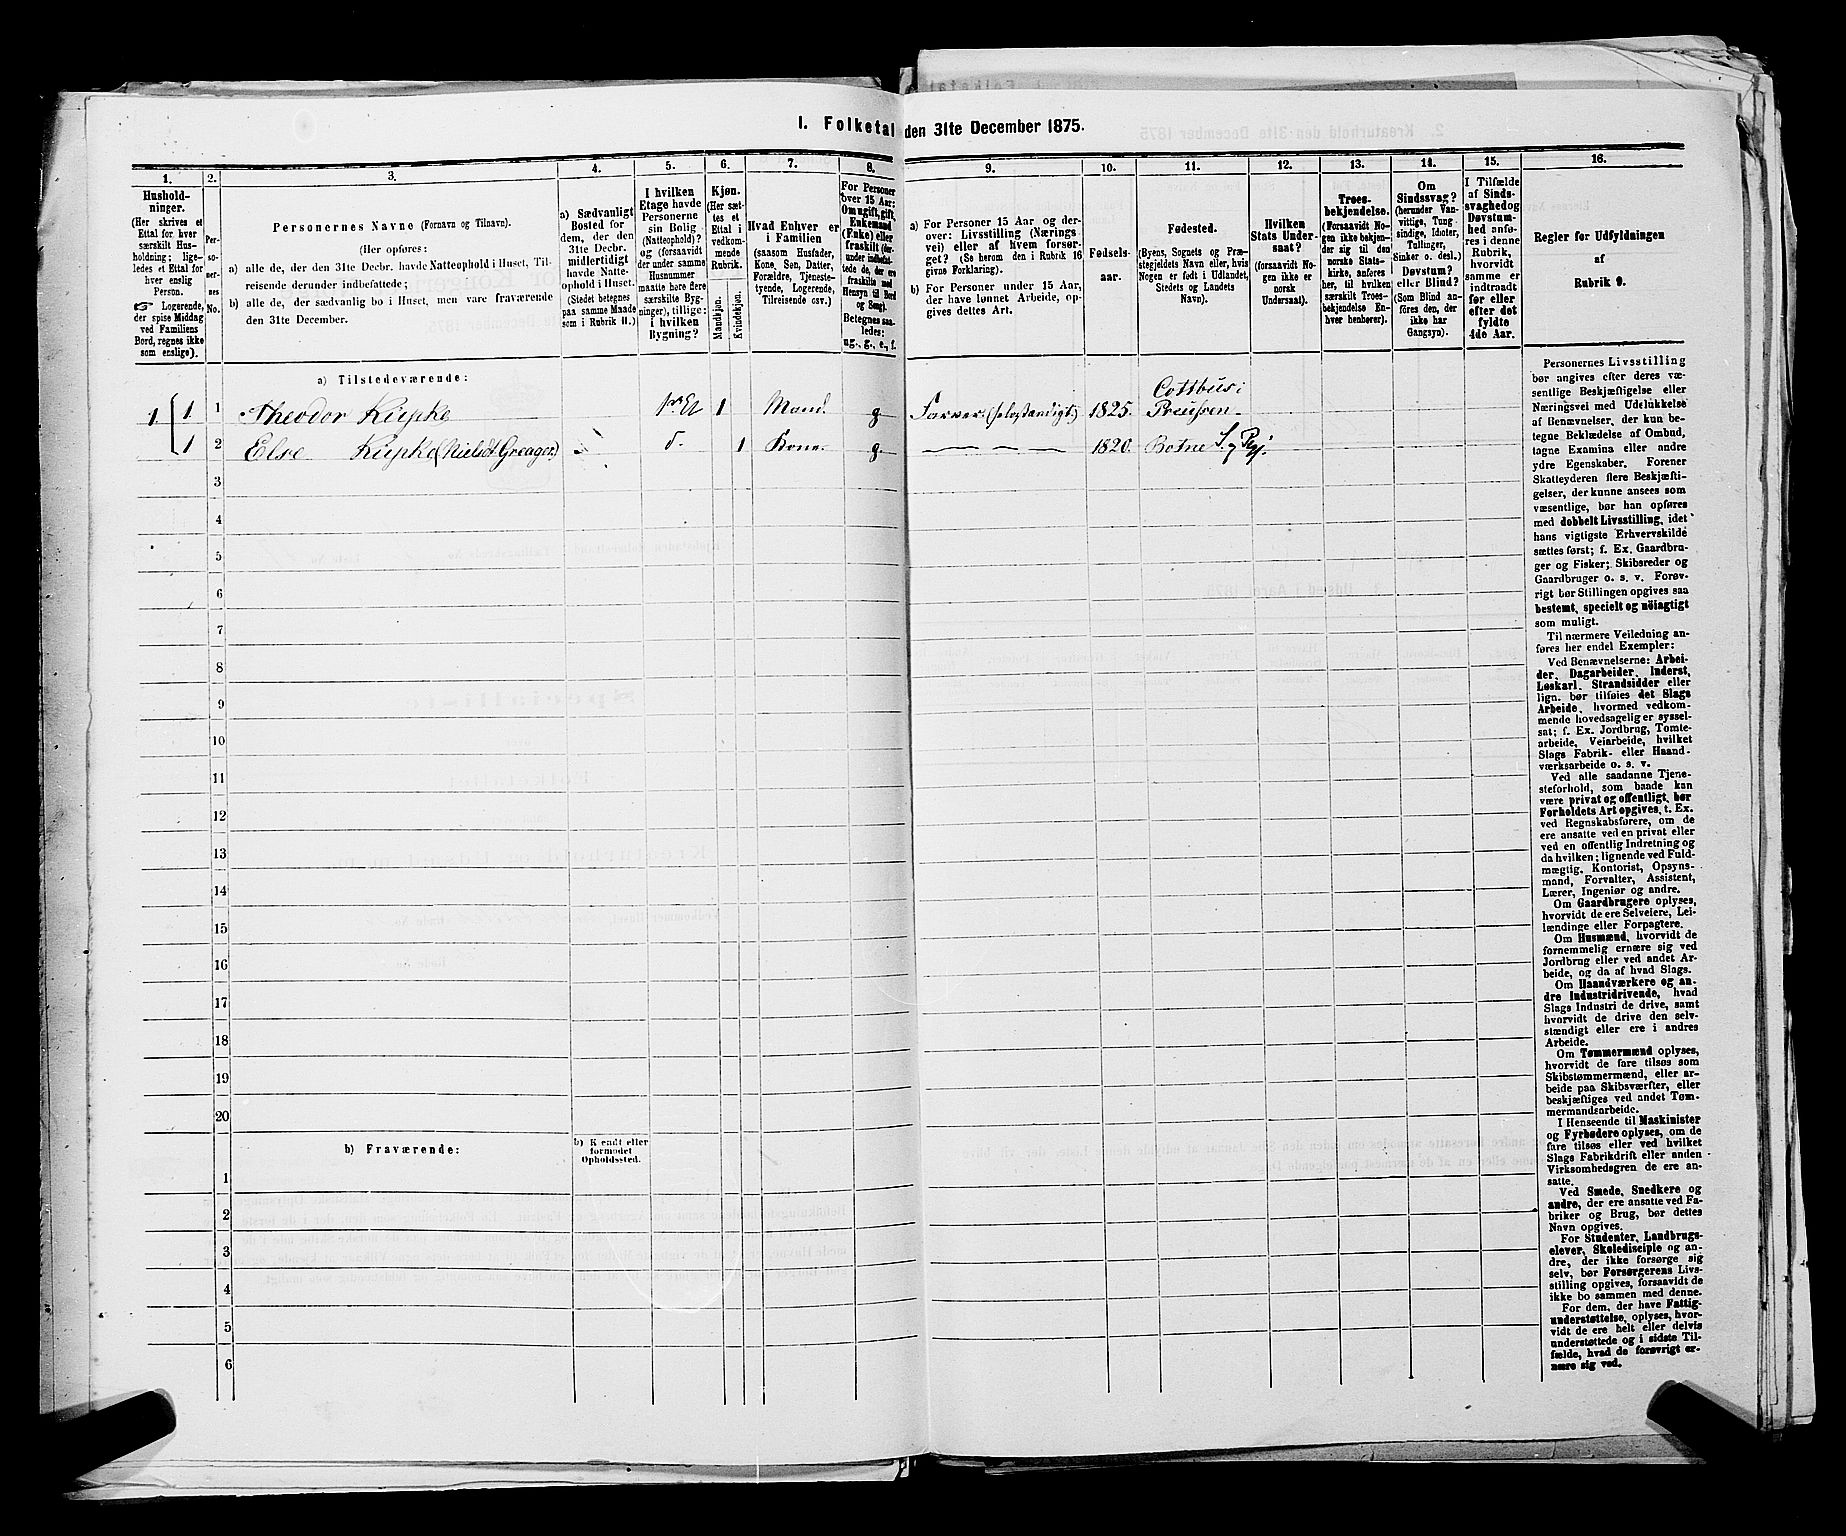 I. Folketal den 31te December 1875.
1.
Hushold-
ninger.
(Her skrives et
Ettal for hver
særskilt Hus-
holdning; lige-
ledes et Ettal for
hver enslig
Person.
Logerende,
der spise Middag
ved Familiens
Bord, regnes ikke
som enslige).
2.
Per-
so-
ner-
nes
No.
3.
Personernes Navne (Fornavn og Tilnavn).
(Her opføres:
a) alle de, der den 31te Decbr. havde Natteophold i Huset, Til-
reisende derunder indbefattede;
b) alle de, der sædvanlig bo i Huset, men vare fraværende
den 31te December.
4.
a) Sædvanligt
Bosted for
dem, der den
31te Decbr.
midlertidigt
havde Natte-
ophold i Huset.
(Stedet betegnes
paa samme Maade
som i Rubrik 11.)
5.
I hvilken
Etage havde
Personerne
sin Bolig
(Natteophold)?
og (forsaavidt
der under samme
Husnummer
maatte høre flere
særskilte Byg-
ninger), tillige:
i hvilken
Bygning?
6.
Kjøn.
(Her sæt-
tes et
Ettal i
vedkom-
mende
Rubrik.
Mandkjøn.
Kvindekjøn.
7.
Hvad Enhver er
i Familien
(saasom Husfader,
Kone, Søn, Datter,
Forældre, Tjeneste-
tyende, Logerende,
Tilreisende osv.)
8.
For Personer
over 15 Aar:
Om ugift, gift,
Enkemand
(Enke) eller
fraskilt (der-
under indbefat-
tede de, der ere
fraskilte med
Hensyn til Bord
og Seng).
Betegnes saa-
ledes:
ug., g., e., f.
9.
a) For Personer 15 Aar og der-
over: Livsstilling (Nærings-
vei) eller af hvem forsør-
get? (Se herom den i Rubrik 16
givne Forklaring).
b) For Personer under 15 Aar,
der have lønnet Arbeide, op-
gives dettes Art.
10.
Fødsels-
aar.
11.
Fødested.
(Byens, Sognets og Præ-
stegjeldets Navn eller, hvis
Nogen er født i Udlandet,
Stedets og Landets
Navn).
12.
Hvilken
Stats Under-
saat?
(forsaavidt No-
gen ikke er
norsk
Undersaat).
13.
Troes-
bekjendelse.
(Forsaavidt No-
gen ikke bekjen-
der sig til den
norske Stats-
kirke, anføres
her, til hvilken
særskilt Troes-
bekjendelse En-
hver henhører).
14.
Om
Sindssvag?
(herunder Van-
vittige, Tung-
sindige, Idioter,
Tullinger,
Sinker o. desl.)
Døvstum?
eller Blind?
(Som Blind an-
føres den, der
ikke har
Gangsyn).
15.
I Tilfælde
af Sinds-
svaghed og
Døvstum-
hed anfø-
res i denne
Rubrik,
hvorvidt
samme er
indtraadt
før eller
efter det
fyldte
4de Aar.
16.
Regler for Udfyldningen
af
Rubrik 9.
a) Tilstedeværende:
1. 1 1 Theodor Kupke 1ste Et 1 Mand g Farver (selvstændigt) 1825. Cottbus i
Preussen
1 2 Else Kupke d. 1 Kone g — — — — 1820. Botne
3
4
5
6
7
8
9
10
11
12
13
14
15
16
17
18
19
20
b) Fraværende:
b) Kjendt eller
formodet
Opholdssted.
1
2
3
4
5
6
Personernes Livsstilling
bør angives efter deres væ-
sentlige Beskjæftigelse eller
Næringsvei med Udelukkelse
af Benævnelser, der kun be-
tegne Beklædelse af Ombud,
tagne Examina eller andre
ydre Egenskaber. Forener
Skatteyderen flere Beskjæfti-
gelser, der kunne ansees som
væsentlige, bør han opføres
med dobbelt Livsstilling, idet
hans vigtigste Erhvervskilde
sættes først; f. Ex. Gaardbru-
ger og Fisker; Skibsreder og
Gaardbruger o. s. v. Forøv-
rigt bør Stillingen opgives saa
bestemt, specielt og nøiagtigt
som muligt.
Til nærmere Veiledning an-
føres her endel Exempler:
Ved Benævnelserne: Arbei-
der, Dagarbeider, Inderst,
Løskarl, Strandsidder eller
lign. bør tilføies det Slags
Arbeide, hvormed vedkom-
mende hovedsagelig er syssel-
sat; f. Ex. Jordbrug, Tomte-
arbeide, Veiarbeide, hvilket
Slags Fabrik- eller Haand-
værksarbeide o. s. v.
Ved alle saadanne Tjene-
steforhold, som baade kan
være privat og offentligt, bør
Forholdets Art opgives, t. Ex.
ved Regnskabsførere, om de
ere ansatte ved en privat eller
ved en offentlig Indretning og
da hvilken; lignende ved Fuld-
mægtig, Kontorist, Opsyns-
mand, Forvalter, Assistent,
Lærer, Ingeniør og andre.
Om Gaardbrugere oplyses,
hvorvidt de ere Selveiere, Lei-
lændinge eller Forpagtere.
Om Husmænd, hvorvidt de
fornemmelig ernære sig ved
Jordbrug eller ved andet Ar-
beide, og da af hvad Slags.
Om Haandværkere og an-
dre Industridrivende, hvad
Slags Industri de drive, samt
hvorvidt de drive den selv-
stændigt eller ere i andres
Arbeide.
Om Tømmermænd oplyses,
hvorvidt de fare tilsøs som
Skibstømmermænd, eller ar-
beide paa Skibsværfter, eller
beskjæftiges ved andet Tøm-
mermandsarbeide.
I Henseende til Maskinister
og Fyrbødere oplyses, om de
fare tilsøs eller ved hvilket
Slags Fabrikdrift eller anden
Virksomhedsgren de ere an-
satte.
Ved Smede, Snedkere og
andre, der ere ansatte ved Fa-
briker og Brug, bør dettes
Navn opgives.
For Studenter, Landbrugs-
elever, Skoledisciple og an-
dre, der ikke forsørge sig
selv, bør Forsørgerens Livs-
stilling opgives, forsaavidt de
ikke bo sammen med denne.
For dem, der have Fattig-
understøttelse, oplyses, hvor-
vidt de ere helt eller delvis
understøttede og i sidste Til-
fælde, hvad de forøvrigt er-
nære sig ved.